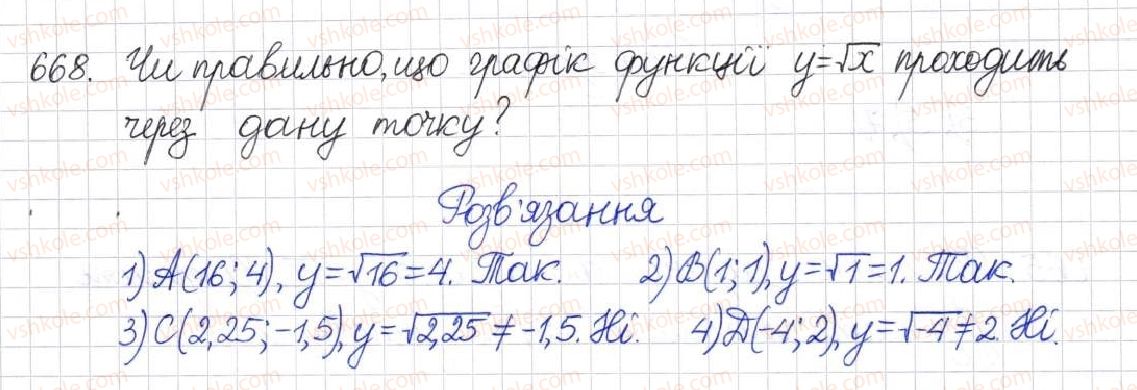 668. Чи правильно, що графік функції y=√x проходить
через дану точку?
Розв'язання
1) A(16; 4), y=√16=4. Так. 2) B(1; 1), y=√1=1. Так.
3) C(2,25; -1,5), y=√2,25 ≠ -1,5. Ні. 4) D(-4; 2), y=√-4 ≠ 2. Ні.